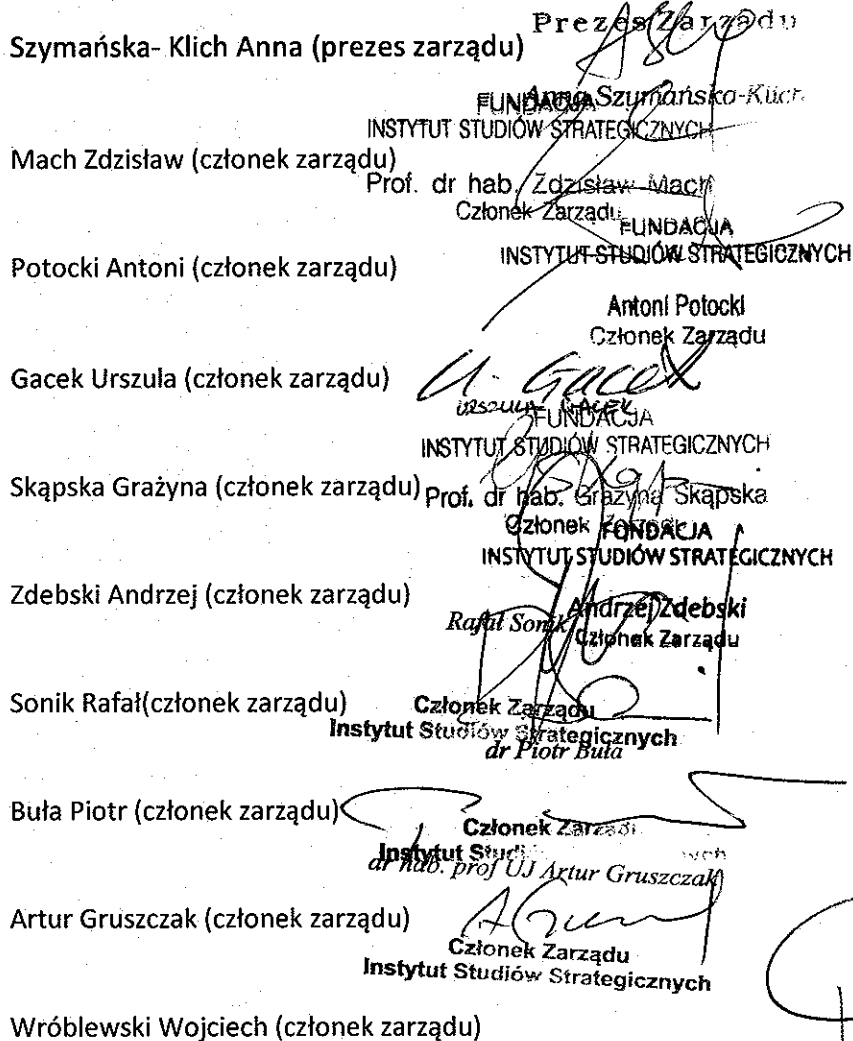 Prezes Zarządu
Szymańska- Klich Anna (prezes zarządu)
Anna Szymańska-Klich
FUNDACJA
INSTYTUT STUDIÓW STRATEGICZNYCH
Mach Zdzisław (członek zarządu)
Prof. dr hab. Zdzisław Mach
Członek Zarządu
FUNDACJA
INSTYTUT STUDIÓW STRATEGICZNYCH
Potocki Antoni (członek zarządu)
Antoni Potocki
Członek Zarządu
Gacek Urszula (członek zarządu)
U. Gacek
URSZULA GACEK
FUNDACJA
INSTYTUT STUDIÓW STRATEGICZNYCH
Skąpska Grażyna (członek zarządu)
Prof. dr hab. Grażyna Skąpska
Członek Zarządu
FUNDACJA
INSTYTUT STUDIÓW STRATEGICZNYCH
Zdebski Andrzej (członek zarządu)
Andrzej Zdebski
Rafał Sonik
Członek Zarządu
Sonik Rafał(członek zarządu)
Członek Zarządu
Instytut Studiów Strategicznych
dr Piotr Buła
Buła Piotr (członek zarządu)
Członek Zarządu
Instytut Studi
dr hab. prof UJ Artur Gruszczak
Artur Gruszczak (członek zarządu)
Członek Zarządu
Instytut Studiów Strategicznych
Wróblewski Wojciech (członek zarządu)